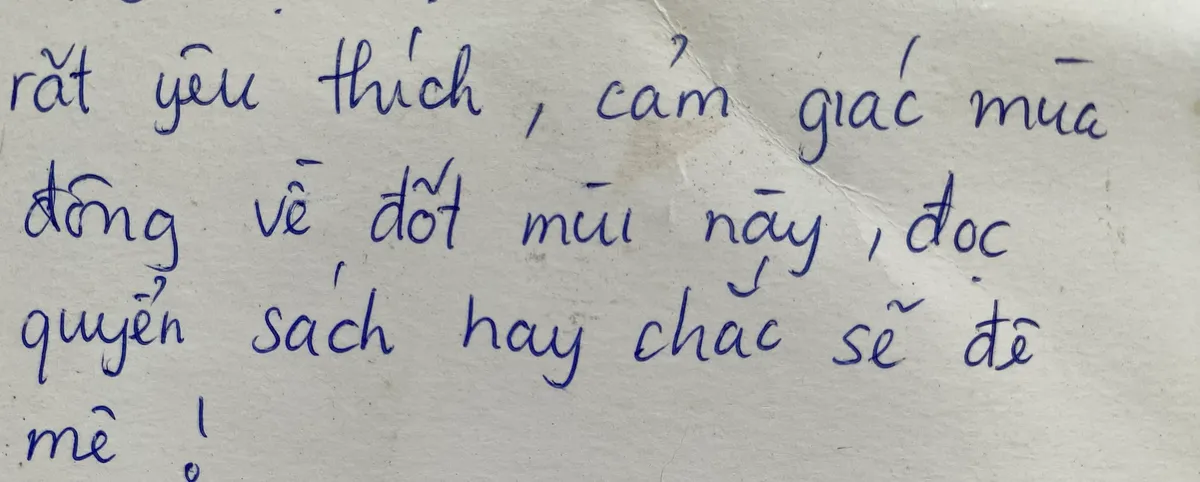 rất yêu thích, cảm giác mùa
đông về đốt mùi này, đọc
quyển sách hay chắc sẽ đê
mê!